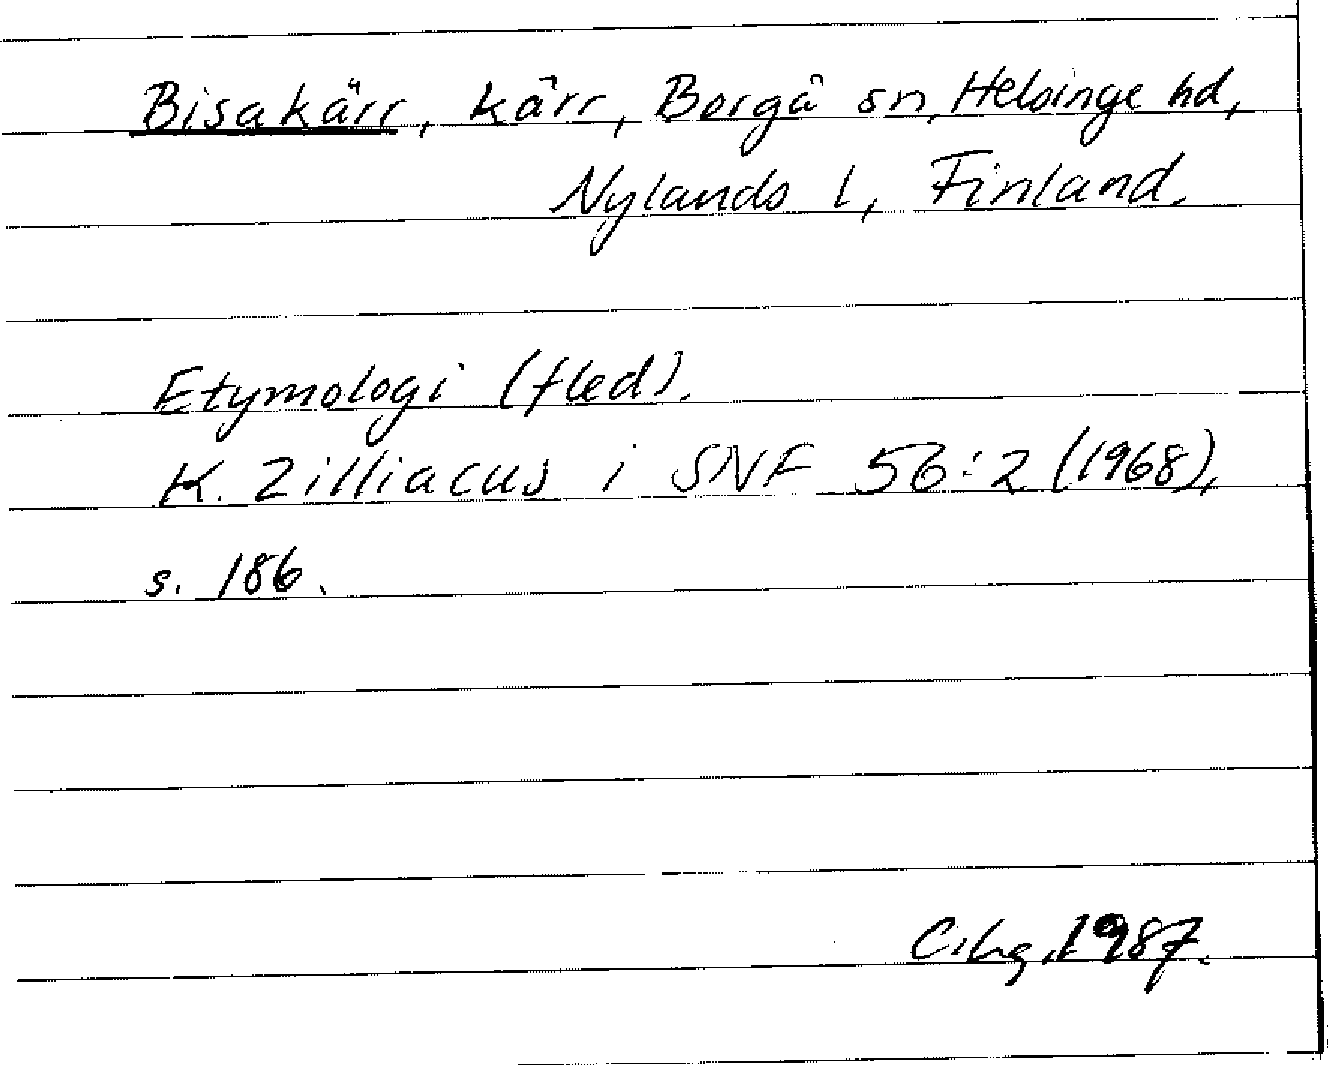 Bisakärr, kärr, Borgå sn, Helsinge hd,
Nylands l, Finland.
Etymologi (fled).
K. Zilliacus i SNF 56:2 (1968),
s. 186.
1987.